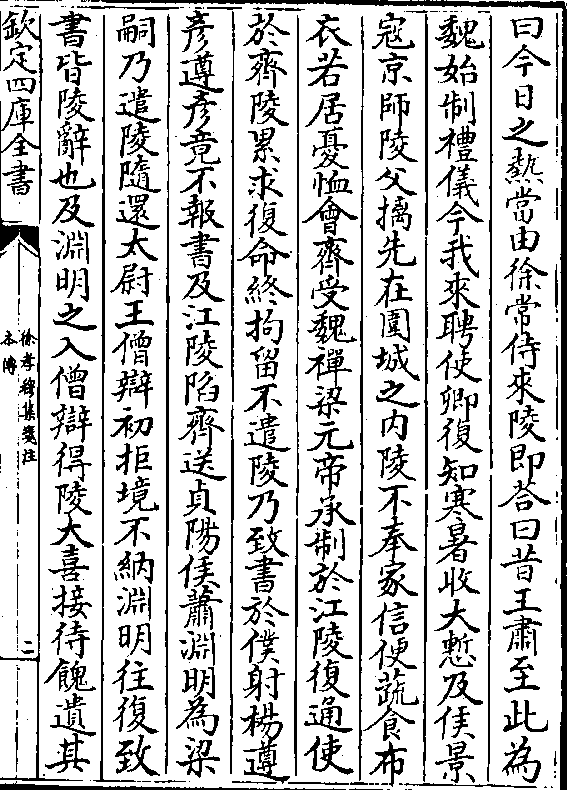 曰今日之熱當由徐常侍來陵即荅曰昔王肅至此為
魏始制禮儀今我來聘使卿復知寒暑收大慙及侯景
寇京師陵父摛先在圍城之内陵不奉家信便蔬食布
衣若居憂恤會齊受魏禪梁元帝承制於江陵復通使
於齊陵累求復命終拘留不遣陵乃致書於僕射楊遵
彦遵彦竟不報書及江陵陷齊送貞陽侯蕭淵明為梁
嗣乃遣陵隨還太尉王僧辯初拒境不納淵明往復致
書皆陵辭也及淵明之入僧辯得陵大喜接待餽遺其
欽定四庫全書
徐孝穆集箋注
本傳
二